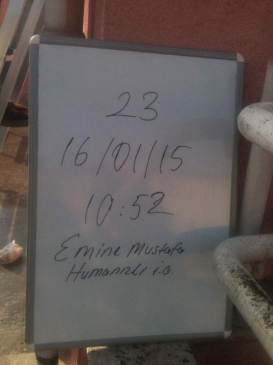 23
16/01/15
10:52
Emine Mustafa
i.o.